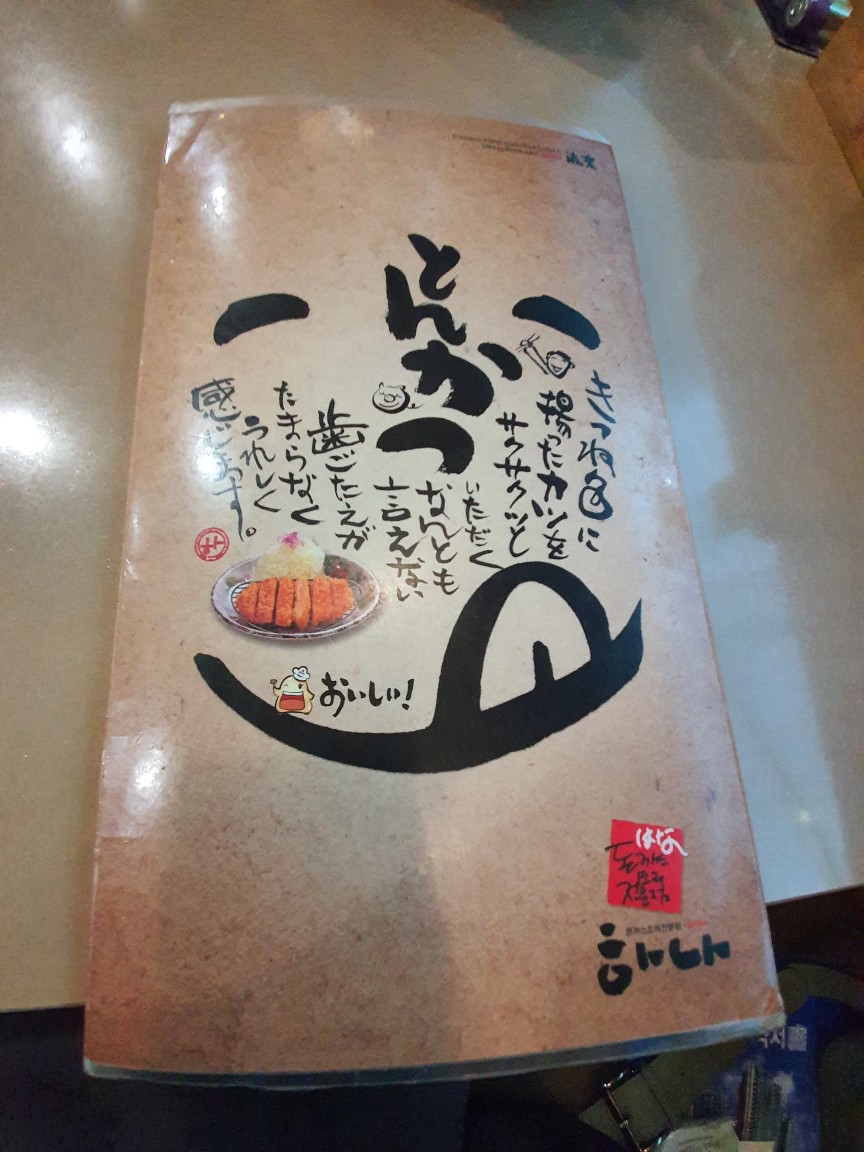 とんかつ
きつね色に
揚ったカツを
サクサクッと
いただく
なんとも
言えない
歯ごたえが
たまらなく
うれしく
感じます。
おいしい!
はな
돈까스
요리
전문점
돈까스요리전문점
하나